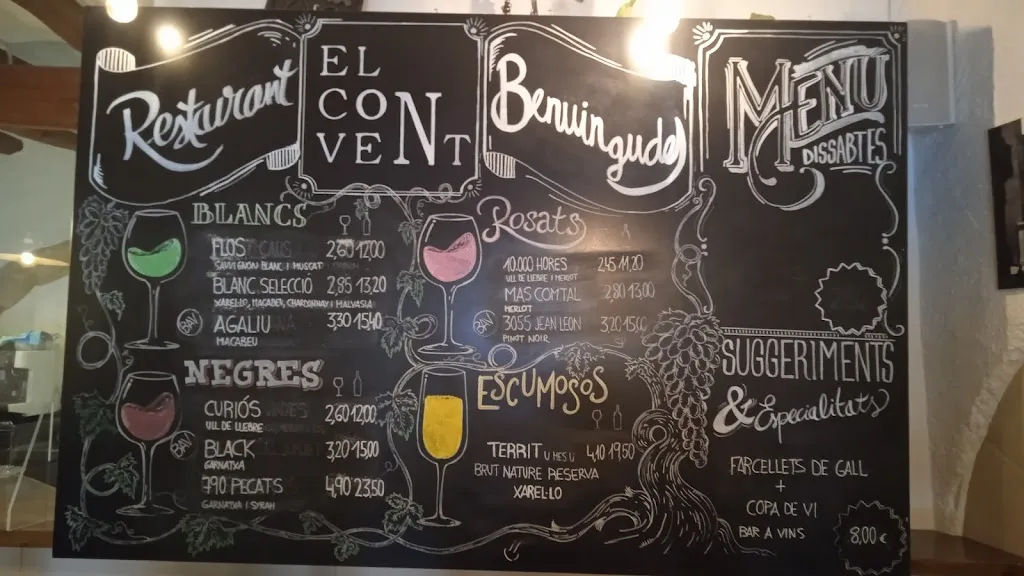 Restaurant
EL
CO
VENT
Benvingude
MENU
DISSABTES
BLANCS
FLOS 2,60 12,00
SAUVIGNON BLANC I MUSCAT
BLANC SELECCIO 2,85 13,20
XARELLO, MACABEU, CHARDONNAY I MALVASIA
AGALIU 3,30 15,40
MACABEU
NEGRES
CURIÓS 2,60 12,00
ULL DE LLEBRE
BLACK 3,20 15,00
GARNATXA
790 PECATS 4,90 23,50
GARNATXA I SYRAH
Rosats
10.000 HORES 2,45 11,20
ULL DE LLEBRE I MERLOT
MAS COMTAL 2,80 13,00
MERLOT
3055 JEAN LEON 3,20 15,00
PINOT NOIR
ESCUMOSOS
TERRIT U MES U 4,10 19,50
BRUT NATURE RESERVA
XARELLO
SUGGERIMENTS
& Especialitats
FARCELLETS DE GALL
+
COPA DE VI
BAR A VINS
8,00 €